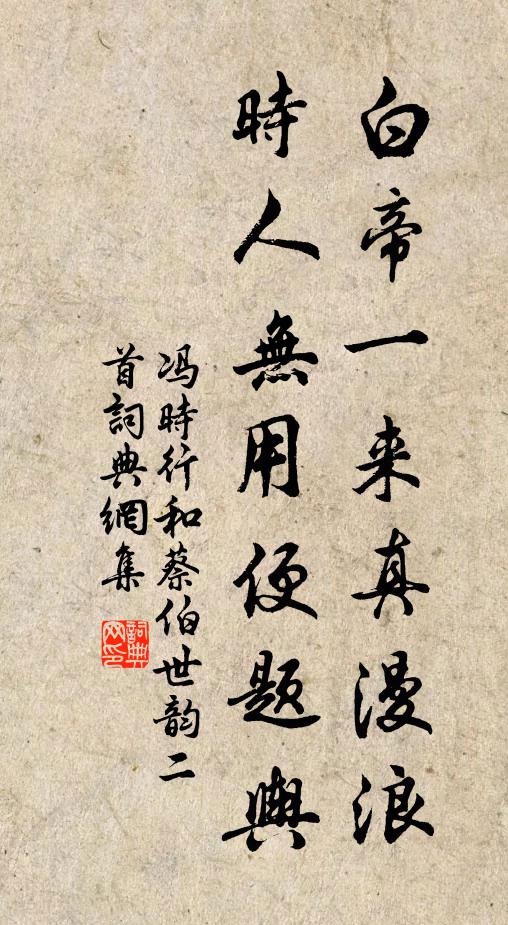 白帝一来真漫浪
時人無用便题輿
冯時行和蔡伯世韵二
首詞典網集
詞典
网印